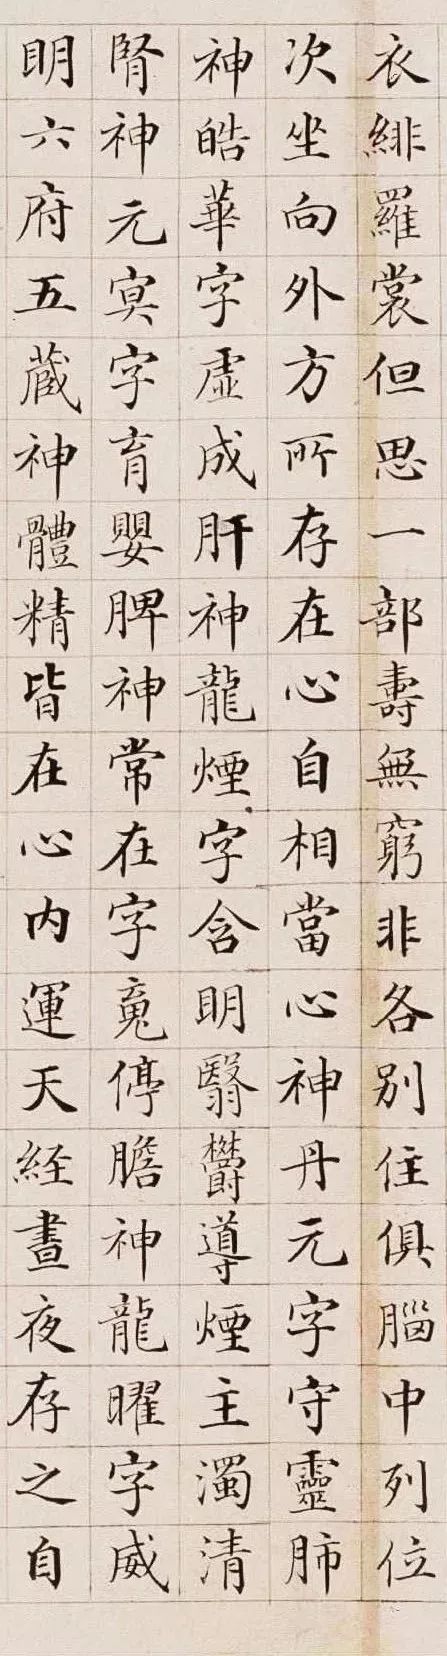 衣緋羅裳但思一部壽無窮非各別住俱腦中列位
次坐向外方所存在心自相當心神丹元字守靈肺
神皓華字虛成肝神龍煙字含眀翳鬱導煙主濁清
腎神元㝠字育嬰脾神常在字魂停膽神龍曜字威
眀六府五藏神體精皆在心内運天経晝夜存之自